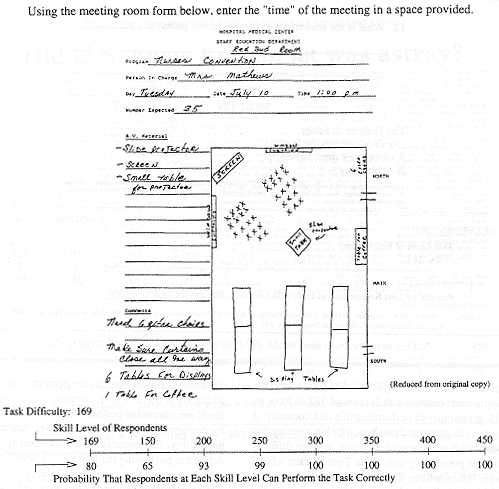 Using the meeting room form below, enter the "time" of the meeting in a space provided.
HOSPITAL MEDICAL CENTER
STAFF EDUCATION DEPARTMENT
Red Bud Room
Program Nurses Convention
Person in Charge Mrs. Mathews
Day Tuesday Date July 10 Time 1:00 p.m
Number Expected 35
A.V. Material
- Slide projector
- Screen
- Small table
for projector
SCREEN
WINDOW
NORTH
Slide
projector
Small
Table
Table for
Coffee
MAIN
Comments
Need 6 extra Chairs
Make Sure Curtains
Close all the way
6 Tables For Displays
1 Table For Coffee
SOUTH
Display Tables
(Reduced from original copy)
Task Difficulty: 169
Skill Level of Respondents
169 150 200 250 300 350 400 450
80 65 93 99 100 100 100 100
Probability That Respondents at Each Skill Level Can Perform the Task Correctly